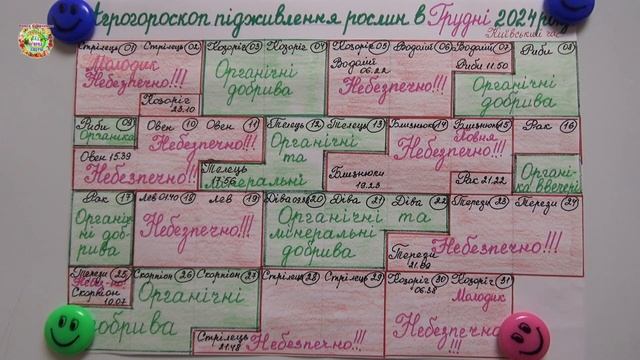 Агрогороскоп підживлення рослин в Грудні 2024 року
Київський час
Стрілець 01 Стрілець 02 Козоріг 03 Козоріг 04 Козоріг 05 Водолій 06 Водолій 07 Риби 08
Молодик
Небезпечно!!!
Козоріг
23.10
Органічні
добрива
Водолій
06.22
Небезпечно!!!
Риби 11.50
Органічні
добрива
Риби 09 Овен 10 Овен 11 Телець 12 Телець 13 Близнюки 14 Близнюки 15 Рак 16
Органіка
Овен 15.39
Небезпечно!!!
Небезпечно!!!
Телець
17.56
Органічні
та
мінеральні
Близнюки
19.23
Повня
Небезпечно!!!
Рак 21.22
Органі-
ка ввечері
Рак 17 Лев 01.40 18 Лев 19 Діва 20 Діва 21 Діва 22 Терези 23 Терези 24
Органіч-
ні доб-
рива
Небезпечно!!!
Органічні та
мінеральні
добрива
Терези
Небезпечно!!!
Терези 25 Скорпіон 26 Скорпіон 27 Стрілець 28 Стрілець 29 Козоріг 30 Козоріг 31
Скорпіон
10.07
Органічні
добрива
Стрілець
21.48
Небезпечно!!!
06.38
Молодик
Небезпечно
!!!